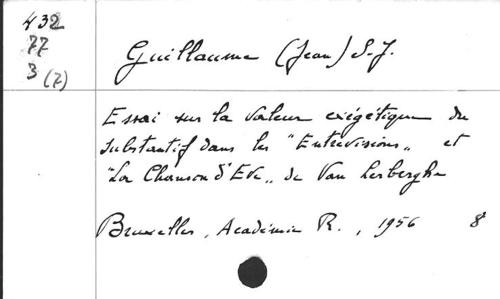 432
77
3 (7)
Guillaume (Jean) S.J.
Essai sur la valeur exégétique du
substantif dans les "Entrevisions" et
"La Chanson d'Eve" de Van Lerberghe
Bruxelles, Académie R., 1956 8°